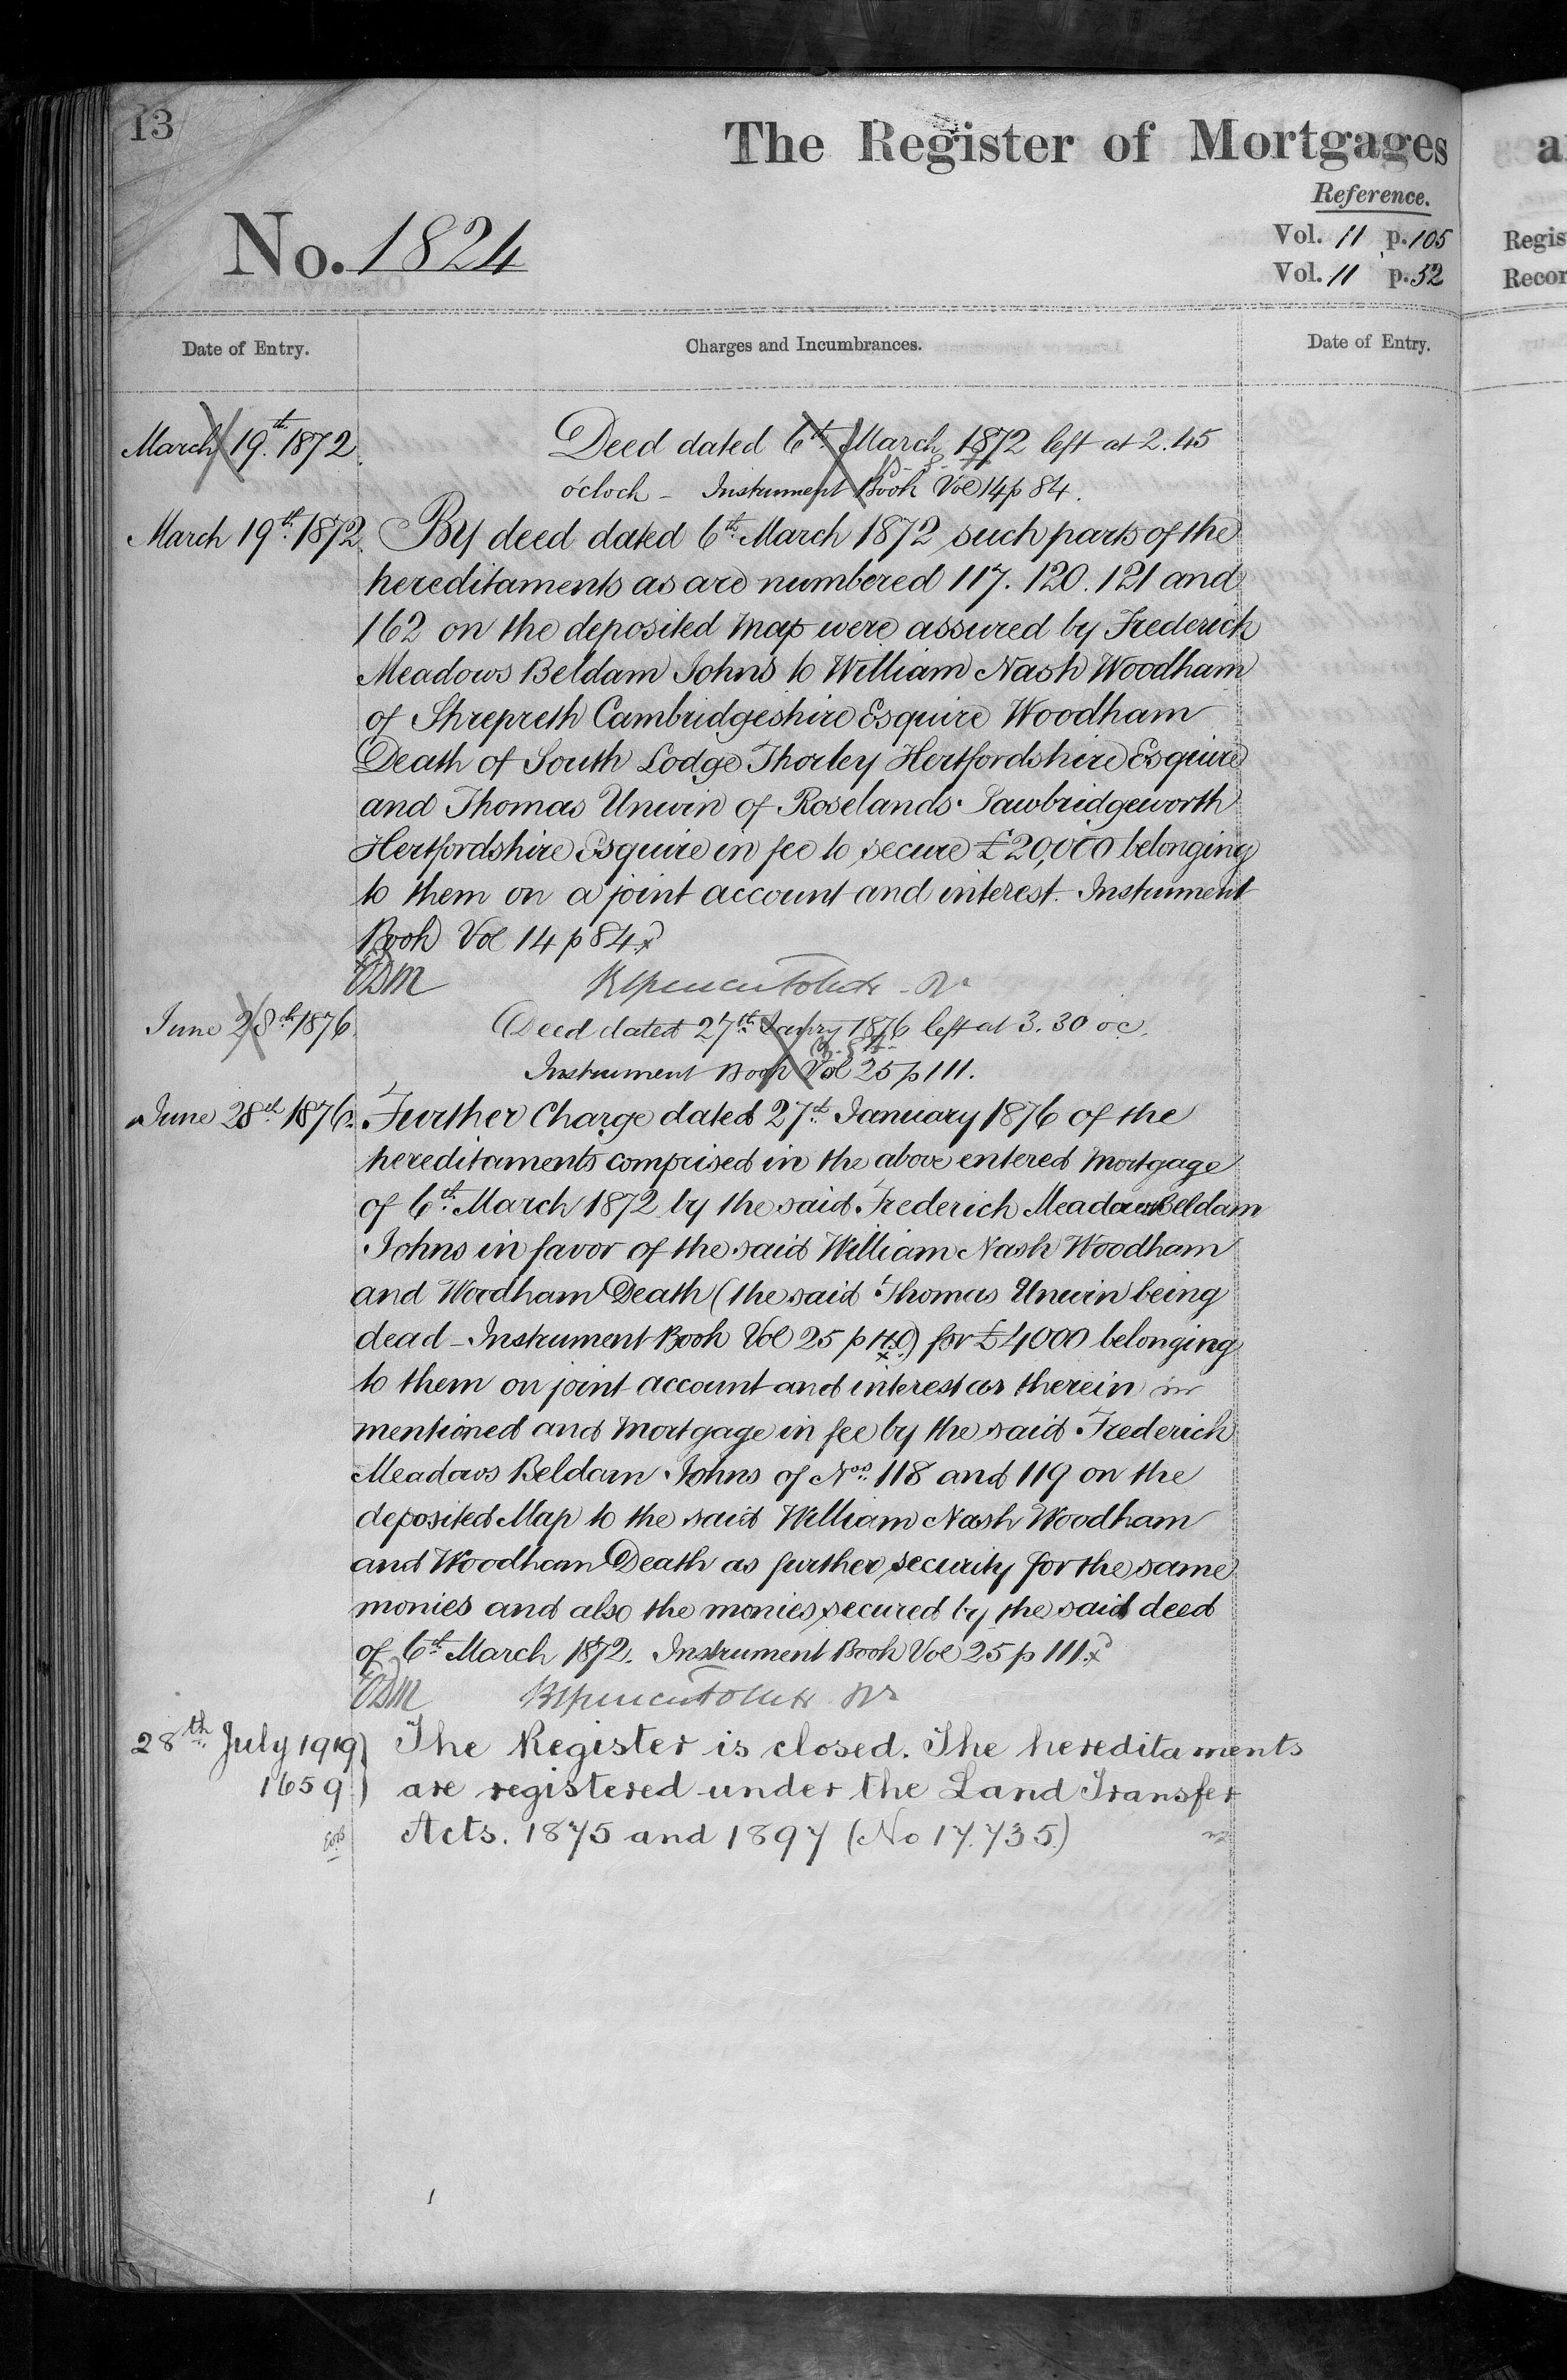 13
The Register of Mortgages
Reference.
No. 1824
Vol. 11 p. 105
Vol. 11 p. 52
Regis
Recor
Date of Entry.
Charges and Incumbrances.
Date of Entry.
March 19th 1872. Deed dated 6th March 1872 left at 2.45
o'cloch - Instrument Book Vol 14 p 84.
March 19th 1872. By deed dated 6th March 1872 such parts of the
hereditaments as are numbered 117. 120. 121 and
162 on the deposited Map were assured by Frederick
Meadows Beldam Johns to William Nash Woodham
of Shrepreth Cambridgeshire Esquire Woodham
Death of South Lodge Thorley Hertfordshire Esquire
and Thomas Unwin of Roselands Sawbridgeworth
Hertfordshire Esquire in fee to secure £20,000 belonging
to them on a joint account and interest. Instrument
Book Vol 14 p 84.
June 28th 1876. Deed dated 27th Janry 1876 left at 3.30 oc.
Instrument Book Vol 25 p 111.
June 28th 1876. Further Charge dated 27th January 1876 of the
hereditaments comprised in the above entered Mortgage
of 6th March 1872 by the said Frederich Meadows Beldam
Johns in favor of the said William Nash Woodham
and Woodham Death (the said Thomas Unwin being
dead - Instrument Book Vol 25 p ) for £4000 belonging
to them on joint account and interest as therein
mentioned and Mortgage in fee by the said Frederich
Meadows Beldam Johns of Nos. 118 and 119 on the
deposited Map to the said William Nash Woodham
and Woodham Death as further security for the same
monies and also the monies secured by the said deed
of 6th March 1872. Instrument Book Vol 25 p 111.
28th July 1919 } The Register is closed. The hereditaments
1659 } are registered under the Land Transfer
Acts. 1875 and 1897 (No 17.735.)